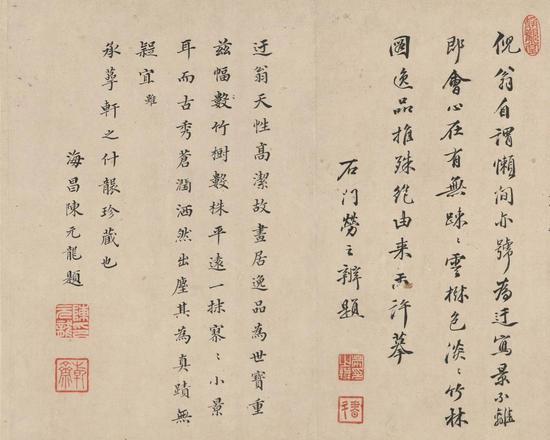 倪翁自謂懶洵亦號為迂寫景不離
即會心在有無踈〻雲樹色淡〻竹林
圖逸品推殊絶由来未許摹
石门勞之辨題
迂翁天性高潔故畫居逸品為世寶重
茲幅數竹樹數株平遠一抹寥〻小景
耳而古秀蒼潤洒然出塵其為真蹟無
疑宜
承蕚軒之什襲珍藏也
海昌陳元龍題